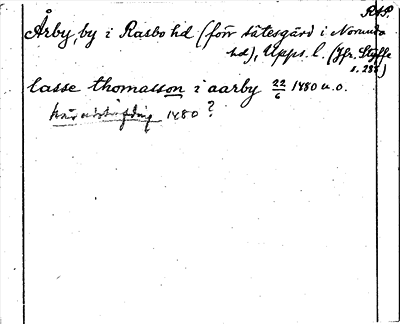 RAP.
Årby, by i Rasbo hd (förr sätesgård i Norunda
hd), Upps. l. (Jfr. Styffe
s. 288)
lasse thomasson i aarby 22/6 1480 u.o.
1480 ?